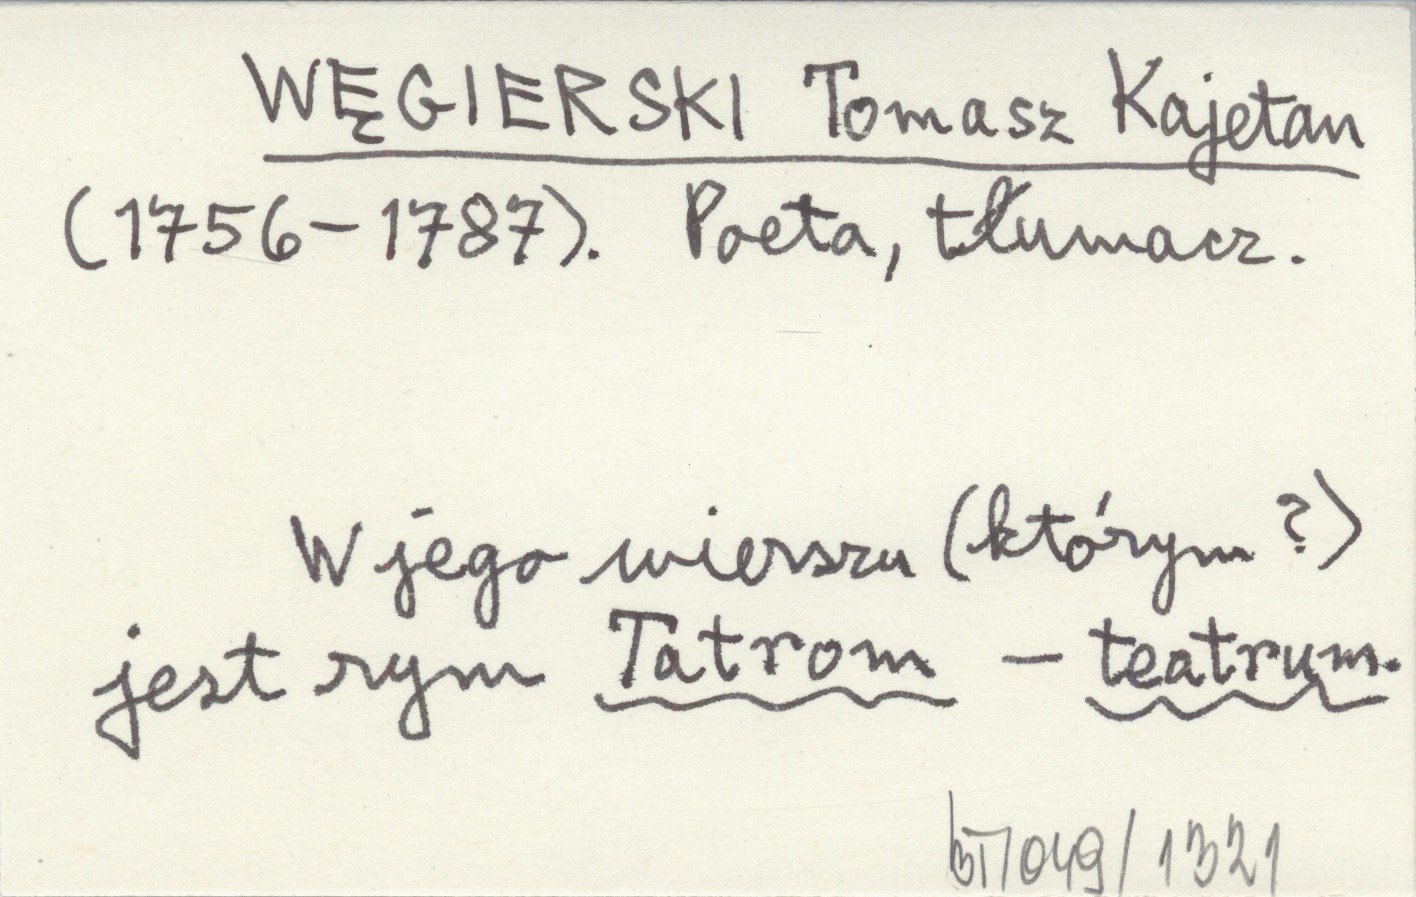 WĘGIERSKI Tomasz Kajetan
(1756–1787). Poeta, tłumacz.
W jego wierszu (którym?)
jest rym Tatrom – teatrum.
049/1321